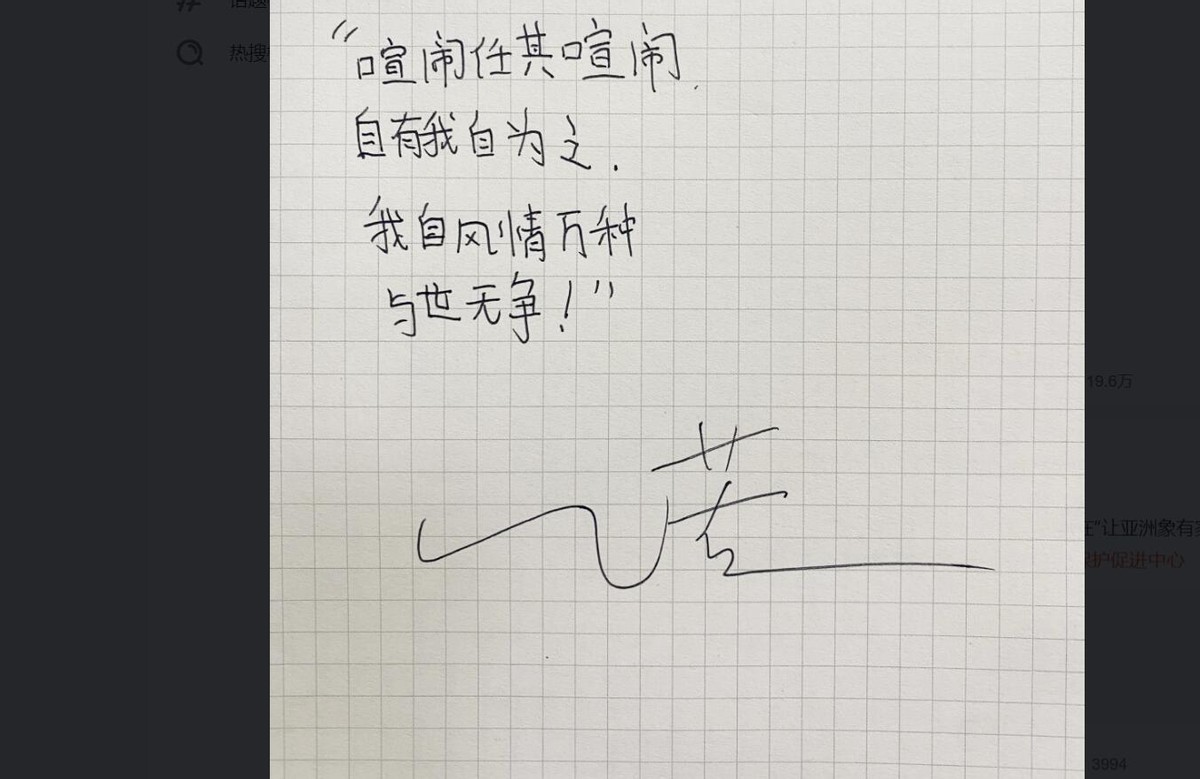 话题
热搜
“喧闹任其喧闹.
自有我自为之.
我自风情万种
与世无争！”
19.6万
在“让亚洲象有
护促进中心
3994